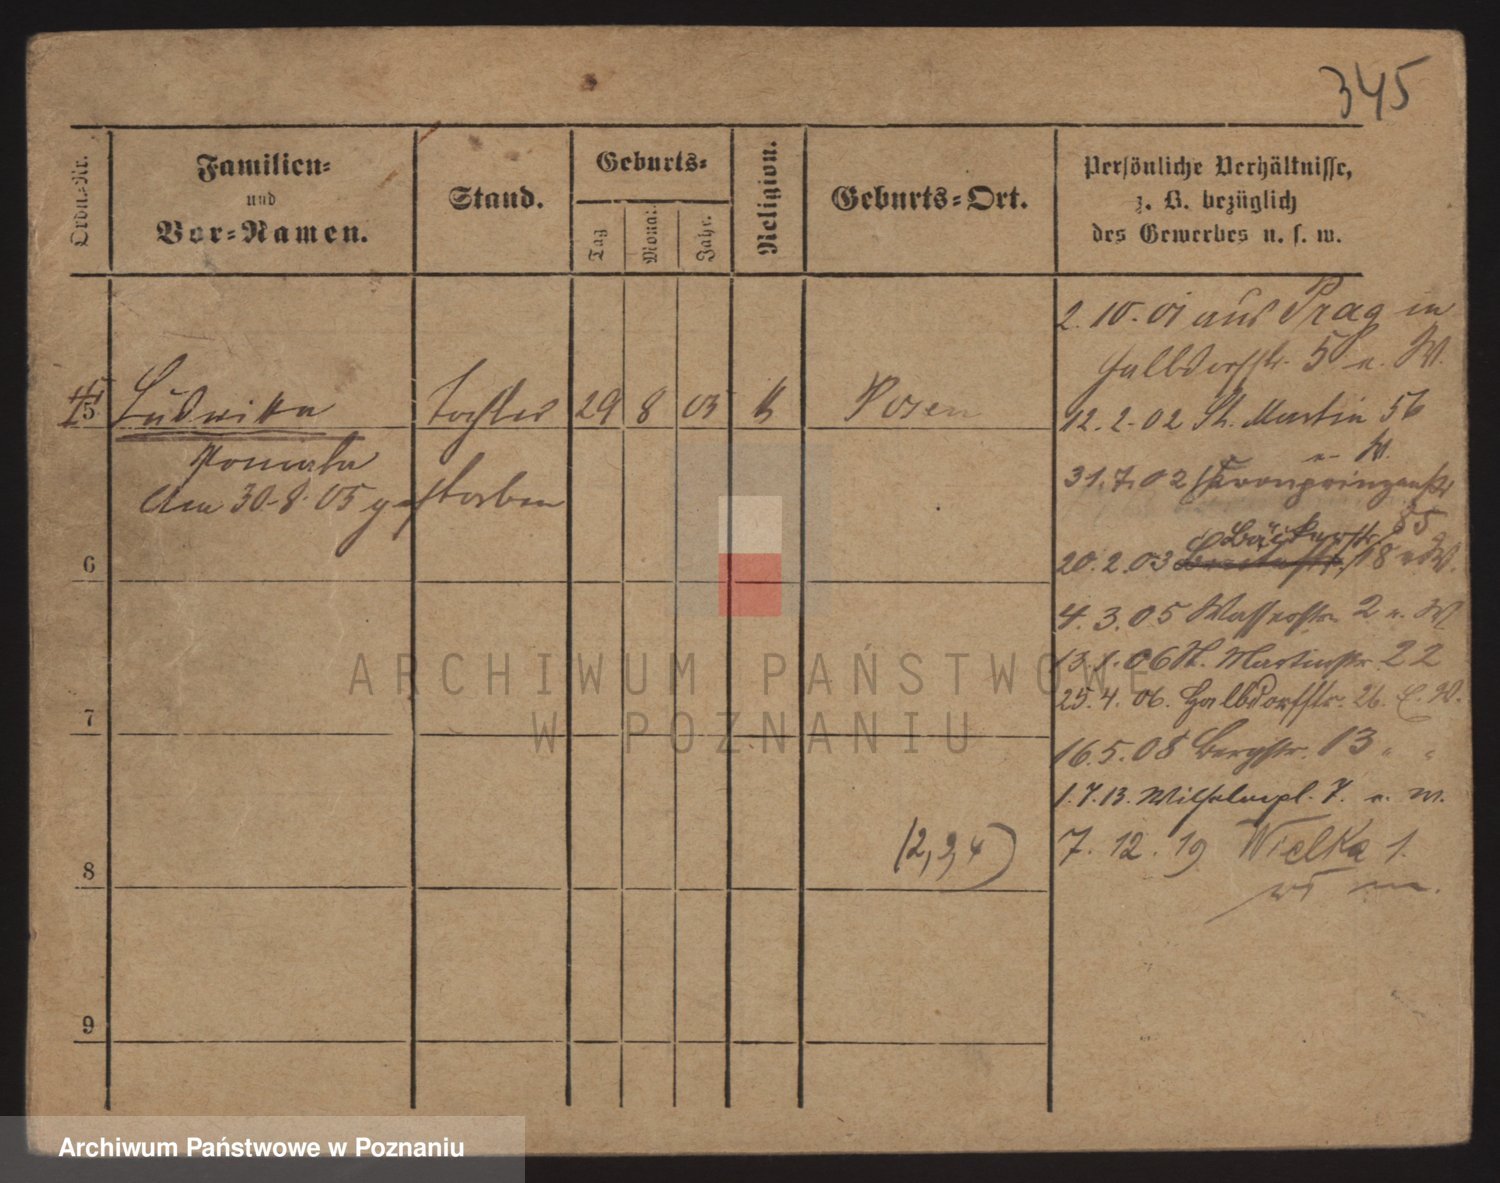 345
Ordn.-Nr.
Familien-
und
Vor-Namen.
Stand.
Geburts-
Tag
Monat
Jahr.
Religion.
Geburts-Ort.
Persönliche Verhältnisse,
z. B. bezüglich
des Gewerbes u. s. w.
5 Ludwika Tochter 29 8 05 k Posen
Am 30.8.05 gestorben
6
7
8
9
(2, 3, 4)
2. 10. 01 aus Prag in
Halbdorfstr. 5 u. W.
12. 2. 02 St. Martin 56
u. W.
31. 7. 02 Kronprinzenstr
85
Bäckerstr.
20. 2. 03 18 u. W.
4. 3. 05 Wasserstr. 2 u. W
13. 1. 06 St. Martinstr. 22
25. 4. 06. Halbdorfstr. 26. E. W.
16. 5. 08 Bergstr. 13 " "
1. 7. 13. Wilhelmpl. 7. u. W.
7. 12. 19 Wielka 1.
ARCHIWUM PAŃSTWOWE
W POZNANIU
Archiwum Państwowe w Poznaniu